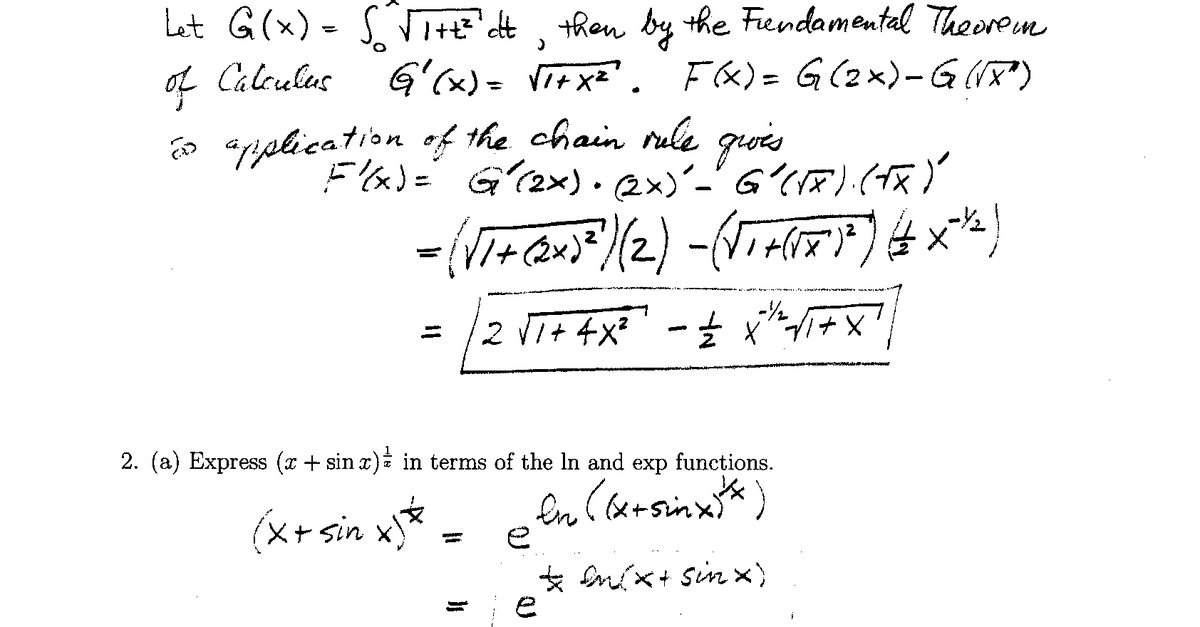 Let G(x) = ∫₀ˣ √(1+t²) dt , then by the Fundamental Theorem
of Calculus G'(x) = √(1+x²) . F(x) = G(2x) - G(√x)
so application of the chain rule gives
F'(x) = G'(2x) · (2x)' - G'(√x) · (√x)'
= (√(1+(2x)²))(2) - (√(1+(√x)²)) (½ x^(-1/2))
= 2 √(1+4x²) - ½ x^(-1/2) √(1+x)
2. (a) Express (x + sin x)^(1/x) in terms of the ln and exp functions.
(x + sin x)^(1/x) = e^(ln((x+sin x)^(1/x)))
= e^(1/x ln(x + sin x))